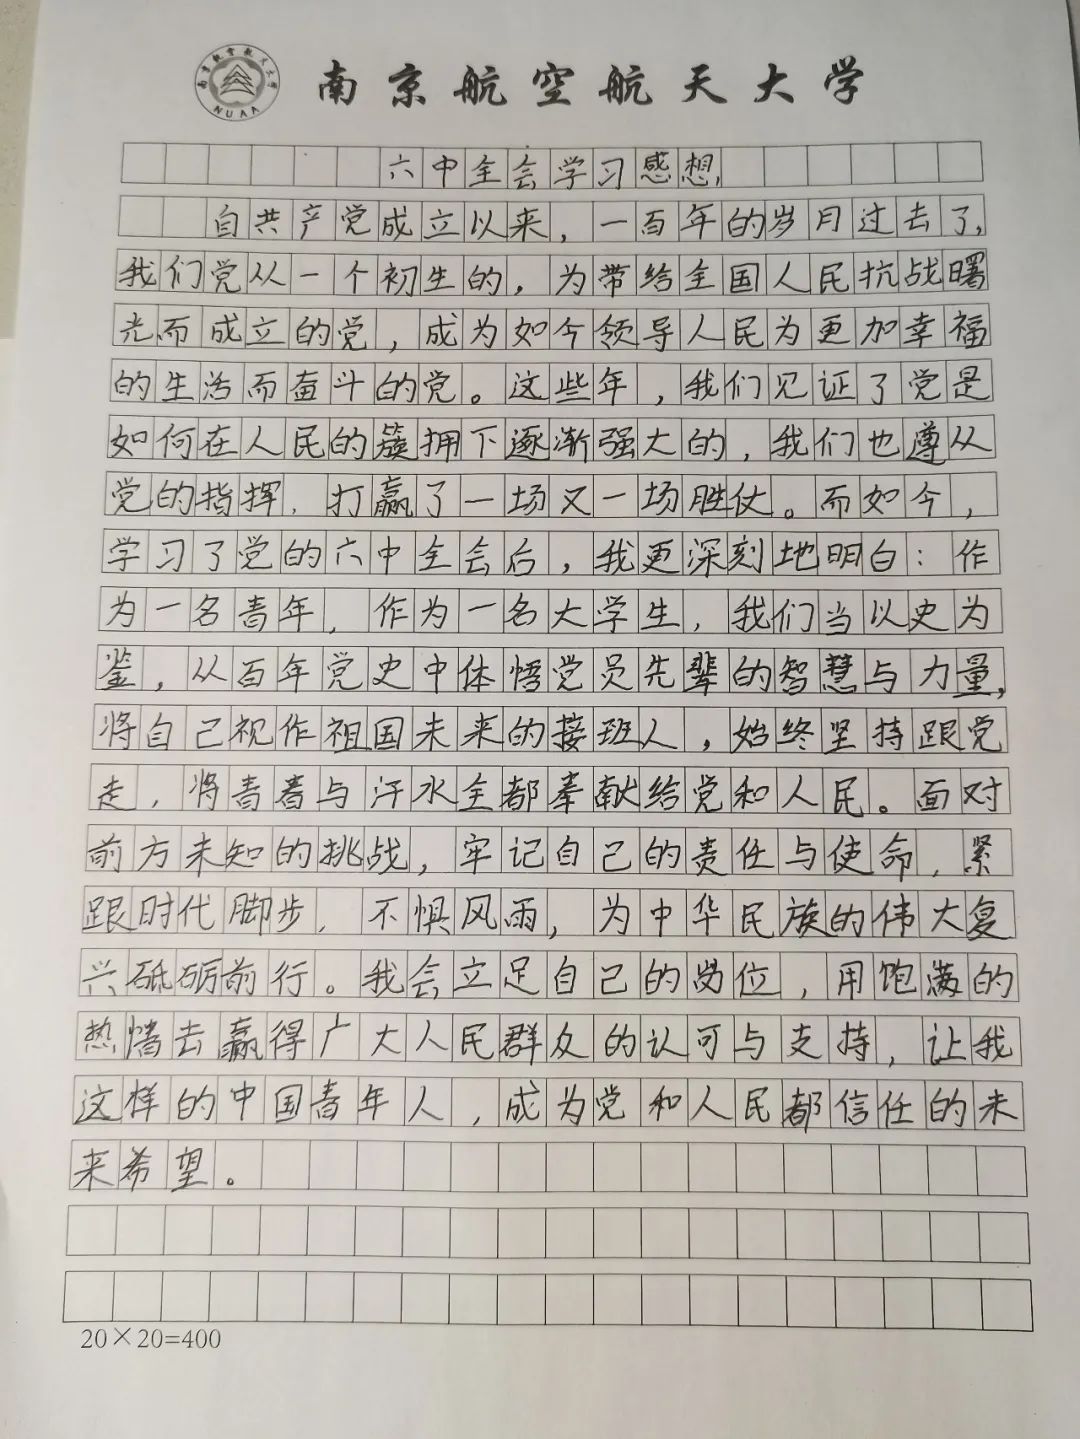 南京航空航天大学
NUAA
六中全会学习感想
自共产党成立以来，一百年的岁月过去了，
我们党从一个初生的，为带给全国人民抗战曙
光而成立的党，成为如今领导人民为更加幸福
的生活而奋斗的党。这些年，我们见证了党是
如何在人民的簇拥下逐渐强大的，我们也遵从
党的指挥，打赢了一场又一场胜仗。而如今，
学习了党的六中全会后，我更深刻地明白：作
为一名青年，作为一名大学生，我们当以史为
鉴，从百年党史中体悟党员先辈的智慧与力量，
将自己视作祖国未来的接班人，始终坚持跟党
走，将青春与汗水全都奉献给党和人民。面对
前方未知的挑战，牢记自己的责任与使命，紧
跟时代脚步，不惧风雨，为中华民族的伟大复
兴砥砺前行。我会立足自己的岗位，用饱满的
热情去赢得广大人民群众的认可与支持，让我
这样的中国青年人，成为党和人民都信任的未
来希望。
20×20=400